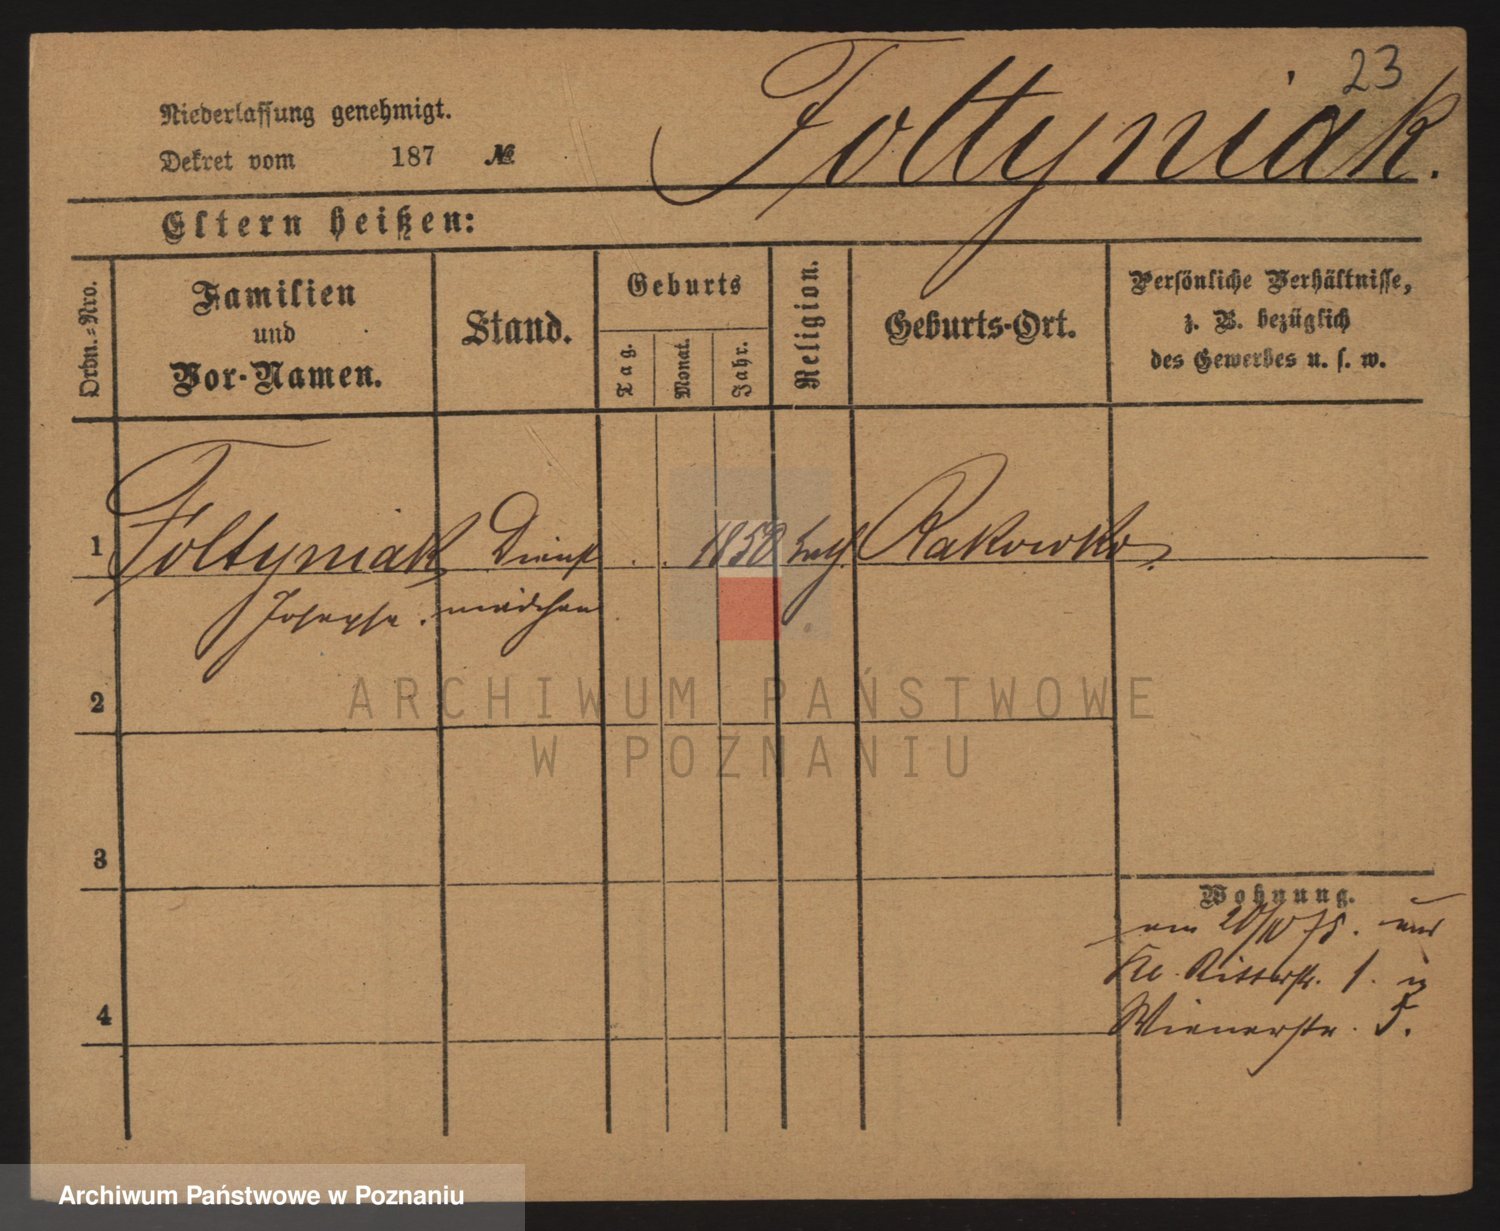 23
Foltyniak.
Niederlassung genehmigt.
Dekret vom 187 №
Eltern heißen:
Ordn.=Nro.
Familien
und
Vor-Namen.
Stand.
Geburts
Tag.
Monat.
Jahr.
Religion.
Geburts-Ort.
Persönliche Verhältnisse,
z. B. bezüglich
des Gewerbes u. s. w.
1 Foltyniak Dienst . . 1858 kath. Rakowko.
Josepha. mädchen
ARCHIWUM PAŃSTWOWE
W POZNANIU
2
3
4
Wohnung.
am 20/IV 75. aus
Kl. Ritterstr. 1. n
Wienerstr. 5.
Archiwum Państwowe w Poznaniu